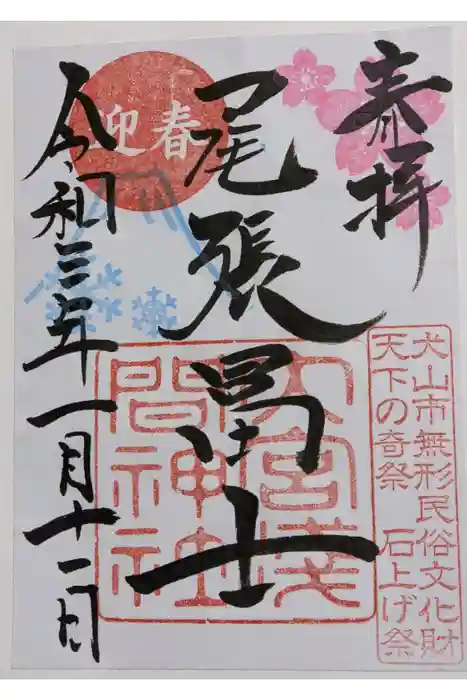 奉拝
犬山市無形民俗文化財
天下の奇祭 石上げ祭
尾張冨士
大宮浅間神社
迎春
令和三年一月十二日